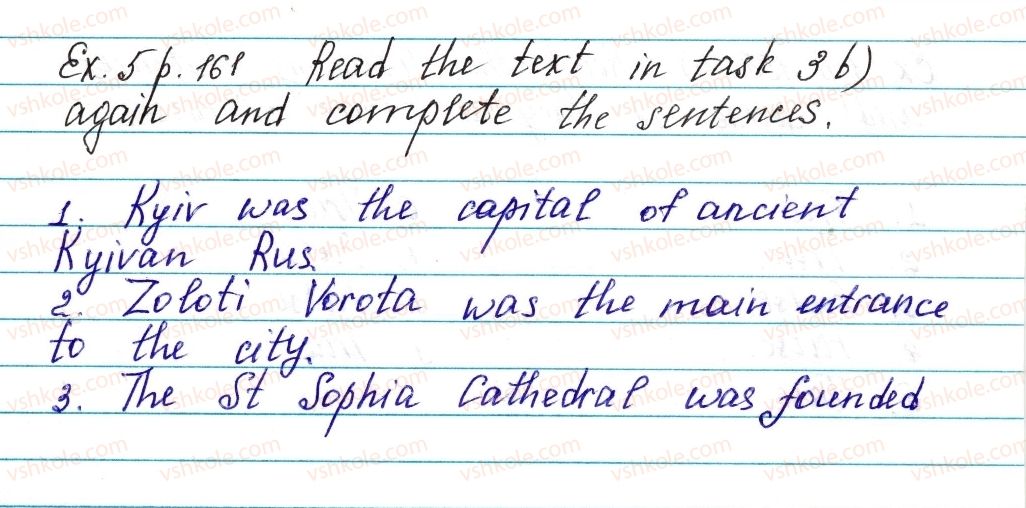 Ex. 5 p. 161 Read the text in task 3 b)
again and complete the sentences.
1. Kyiv was the capital of ancient
Kyivan Rus.
2. Zoloti Vorota was the main entrance
to the city.
3. The St Sophia Cathedral was founded